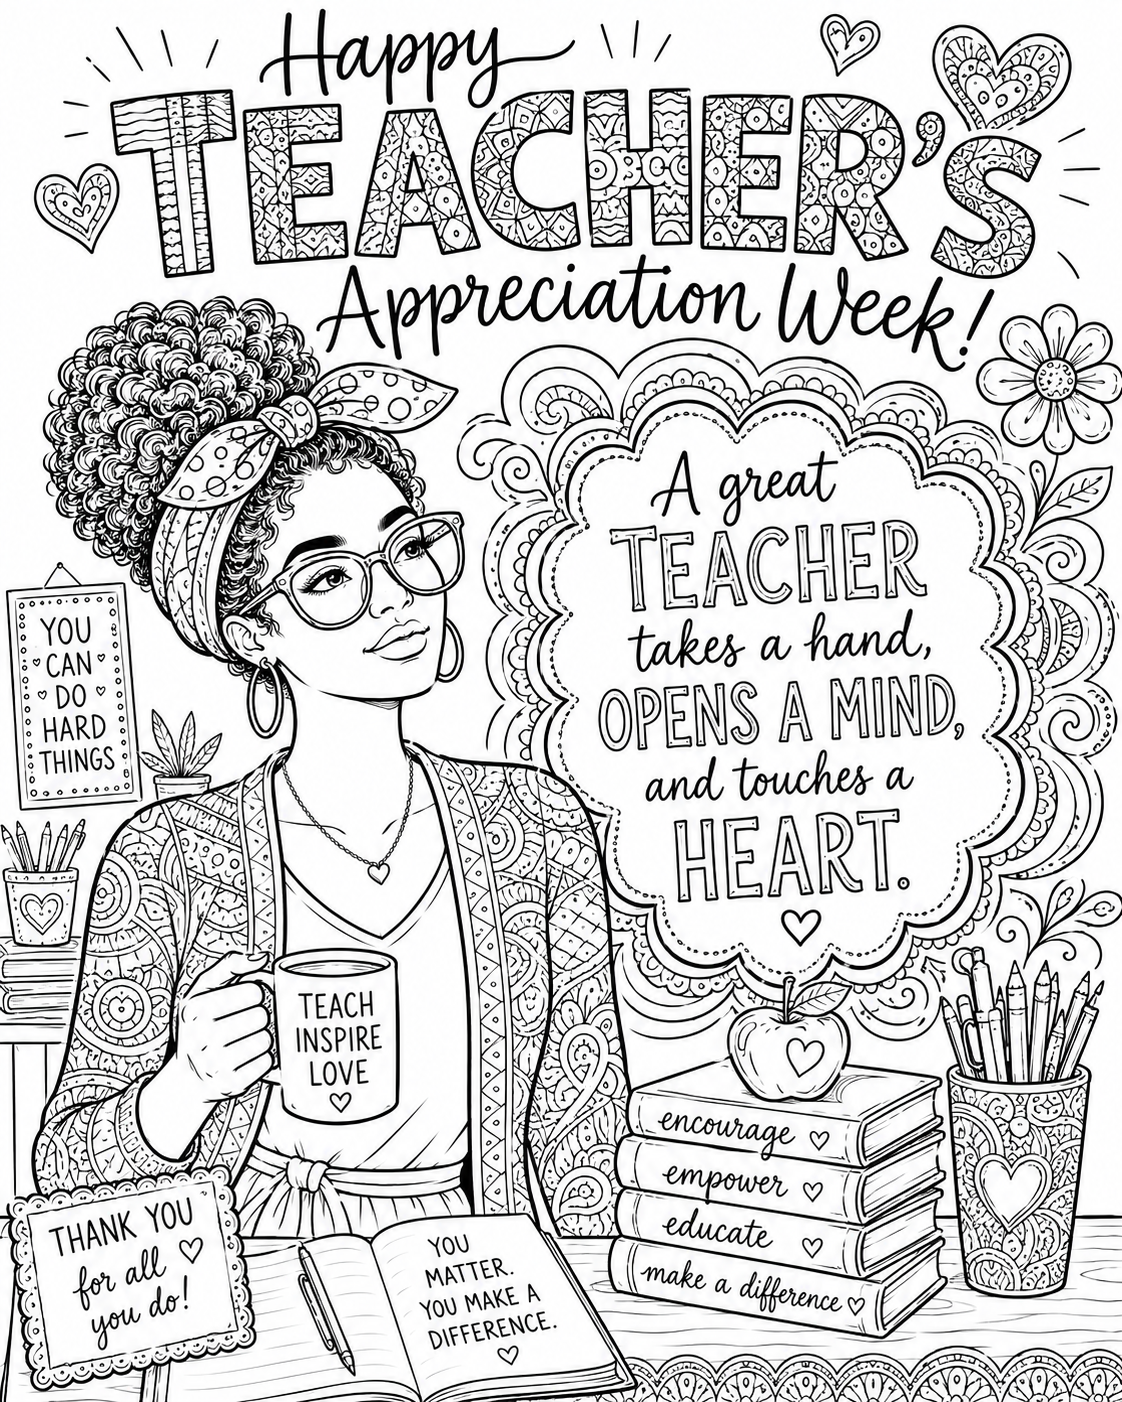 Happy
TEACHER'S
Appreciation Week!
A great
TEACHER
takes a hand,
OPENS A MIND,
and touches a
HEART.
YOU
CAN
DO
HARD
THINGS
TEACH
INSPIRE
LOVE
encourage
empower
educate
make a difference
THANK YOU
for all
you do!
YOU
MATTER.
YOU MAKE A
DIFFERENCE.